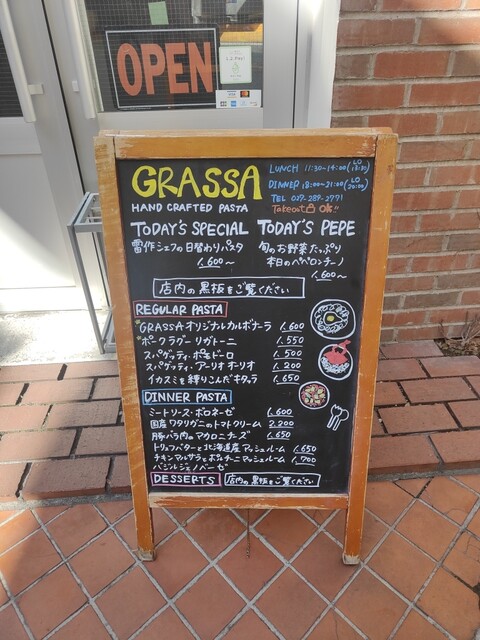 OPEN
GRASSA
HAND CRAFTED PASTA
LUNCH 11:30~14:00 (LO 13:30)
DINNER 18:00~21:00 (LO 20:00)
TEL 027-289-2771
Takeout OK!!
TODAY'S SPECIAL
雷作シェフの日替わりパスタ
1,600~
TODAY'S PEPE
旬のお野菜たっぷり
本日のペペロンチーノ
1,600~
店内の黒板をご覧ください
REGULAR PASTA
GRASSAオリジナルカルボナーラ 1,600
ポークラグーリガトーニ 1,550
スパゲッティ・ポモドーロ 1,500
スパゲッティ・アーリオオーリオ 1,200
イカスミを練りこんだキタッラ 1,650
DINNER PASTA
ミートソース・ボロネーゼ 1,600
国産ワタリガニのトマトクリーム 2,200
豚バラ肉のマカロニチーズ 1,650
トリュフバターと北海道産マッシュルーム 1,650
チキンマルサラとポルチーニマッシュルーム 1,700
バジルジェノベーゼ
DESSERTS 店内の黒板をご覧ください